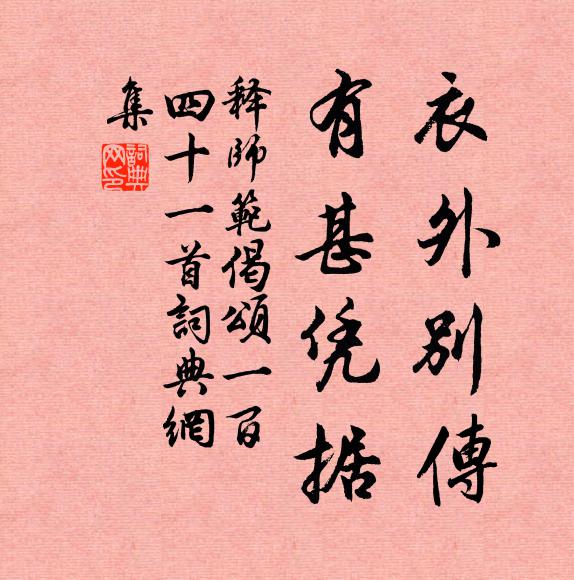 衣外別傳
有甚凭据
释師範偈頌一百
四十一首詞典網
集
詞典網印